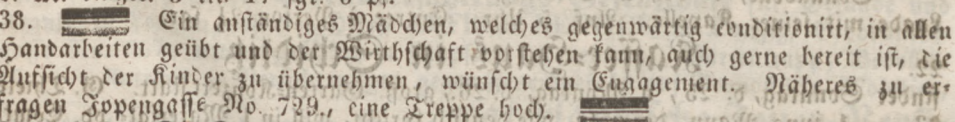 38. Ein anſtändiges Mädchen, welches gegenwärtig conditionirt, in allen
Handarbeiten geübt und der Wirthſchaft vorſtehen kann, auch gerne bereit iſt, die
Aufſicht der Kinder zu übernehmen, wünſcht ein Engagement. Näheres zu er-
fragen Jopengaſſe No. 729., eine Treppe hoch.